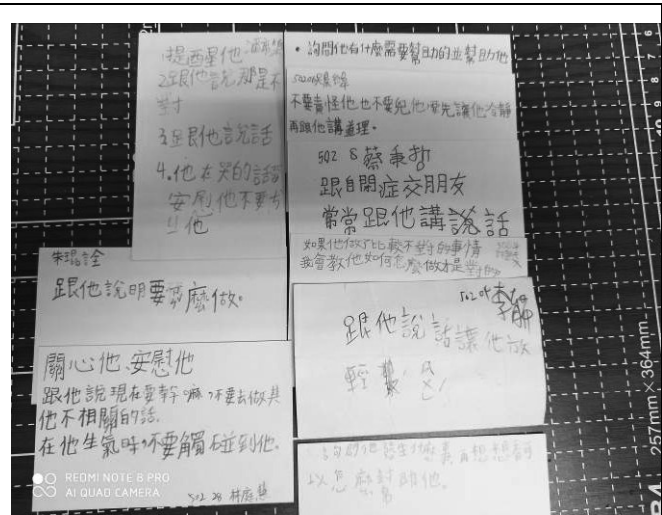 1提西星他
2跟他說那是不
對
3跟他說話
4.他在哭的話
安慰他不要
他
• 詢問他有什麼需要幫助的並幫助他
不要責怪他也不要兇他要先讓他冷靜
再跟他講道理。
502 8 蔡秉哲
跟自閉症交朋友
常常跟他講說話
如果他做了比較不對的事情
我會教他如何怎麼做才是對的
跟他說明要怎麼做。
502
跟他說話讓他放
輕鬆
關心他、安慰他
跟他說現在要幹嘛,不要去做其
他不相關的話.
在他生氣時,不要觸碰到他.
502 28 林庭慧
REDMI NOTE 8 PRO
AI QUAD CAMERA
257mm×364mm